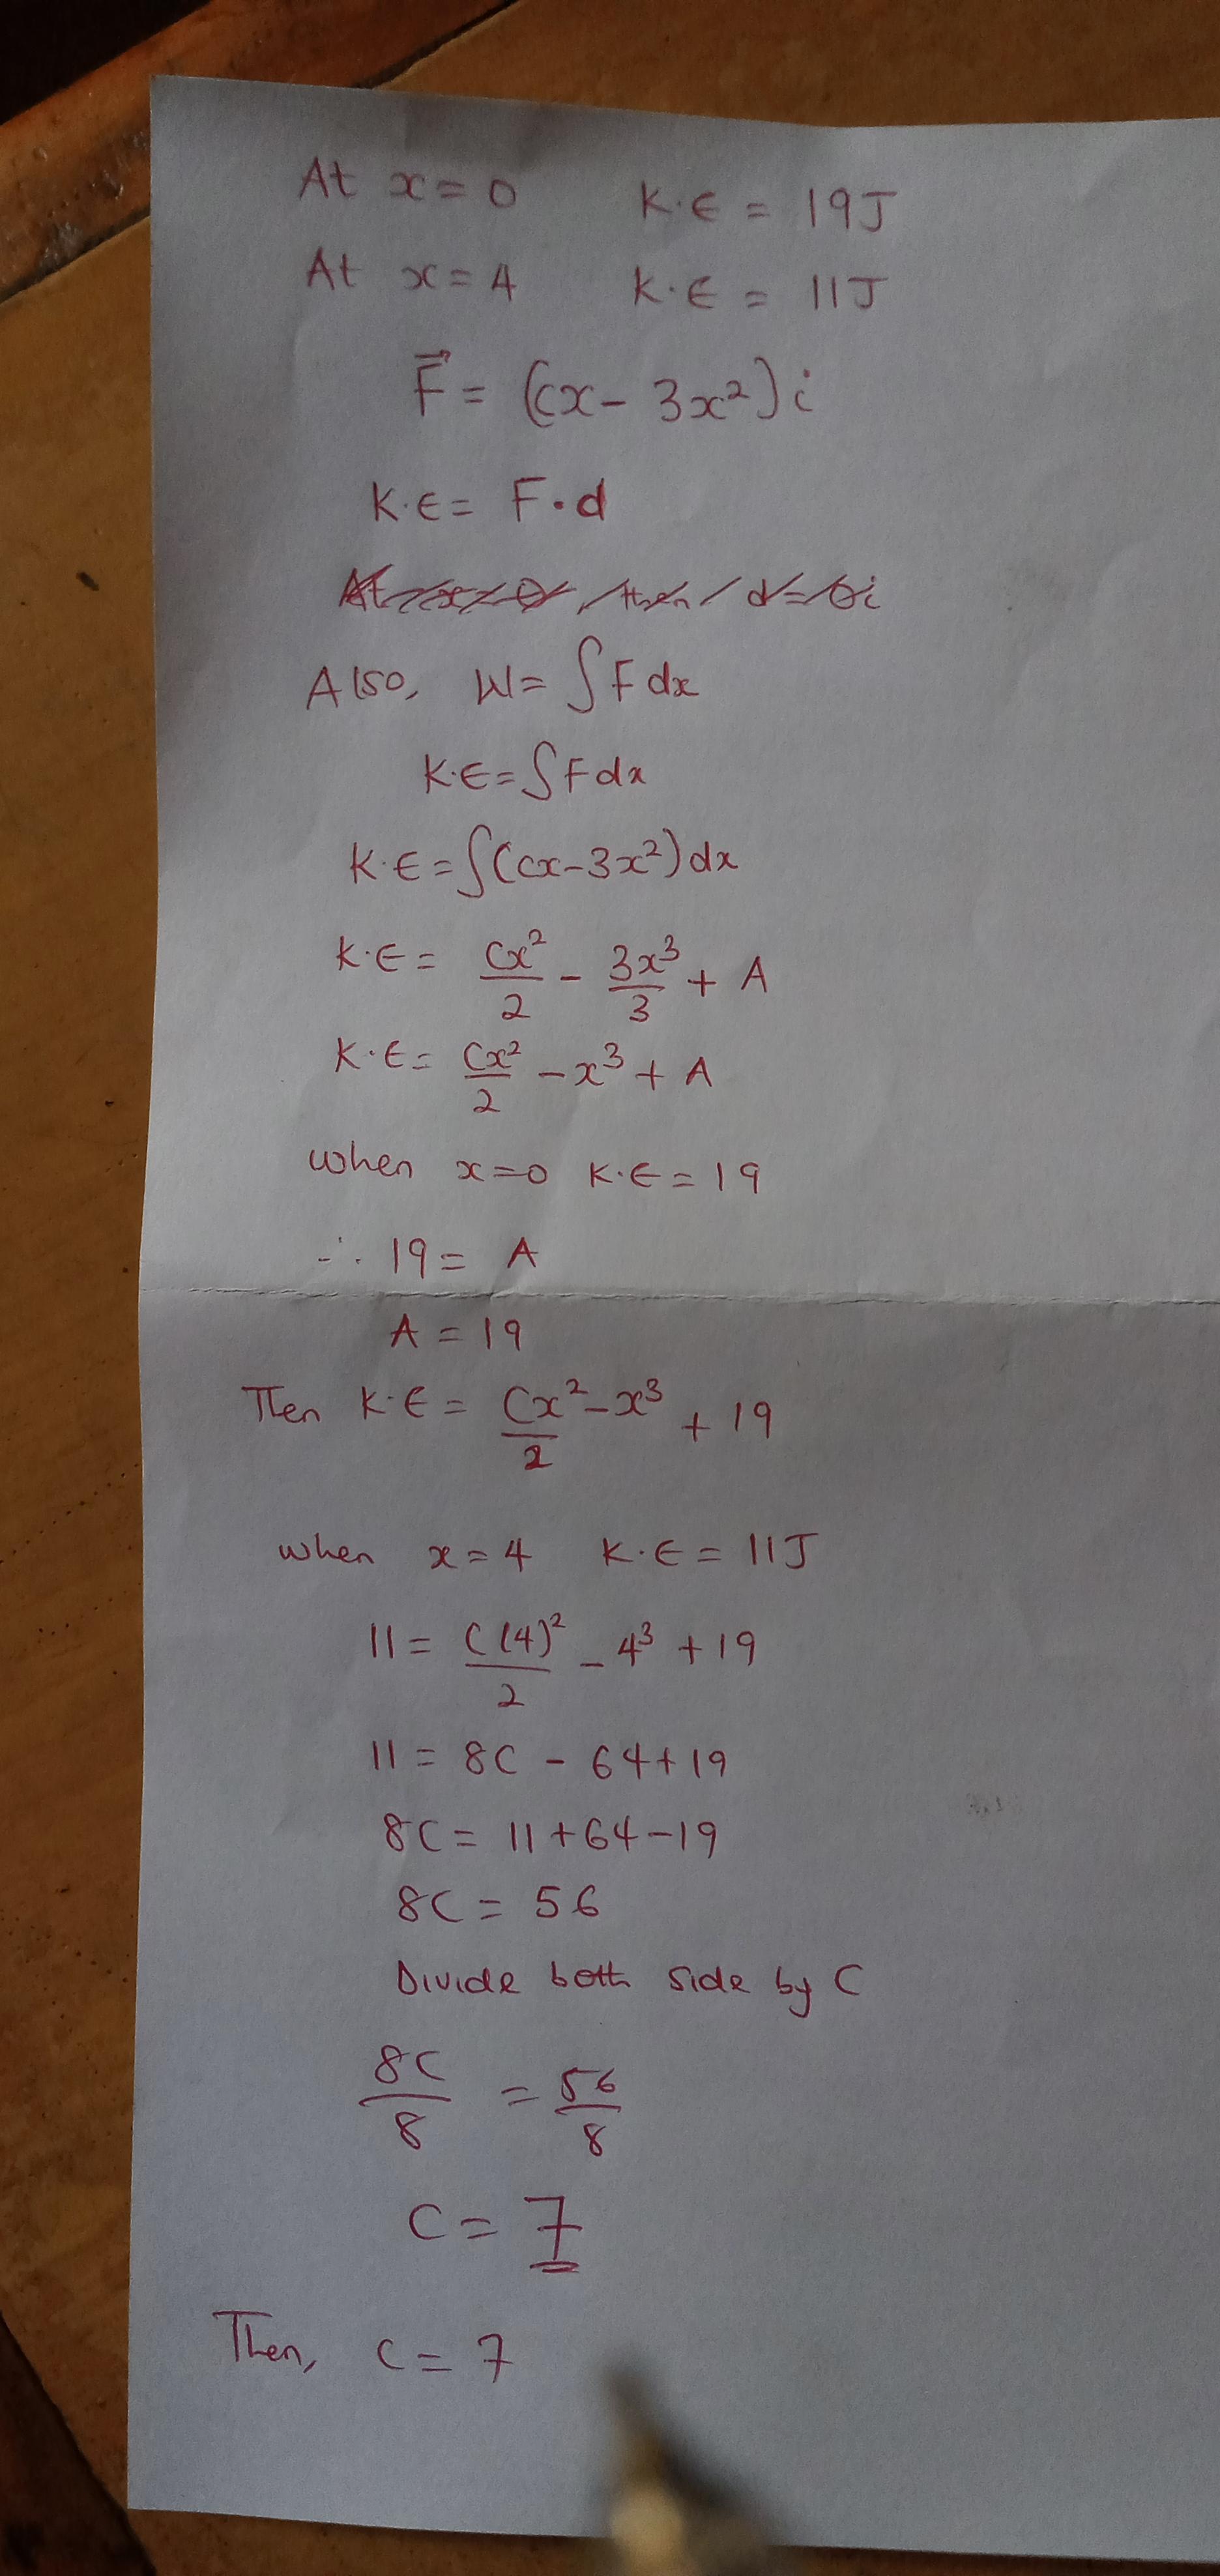 At x = 0 K.E = 19J
At x = 4 K.E = 11J
F⃗ = (cx - 3x²) i
K.E = F . d
At x = 0, then d = 0i
Also, W = ∫F dx
K.E = ∫F dx
K.E = ∫(cx - 3x²) dx
K.E = Cx²/2 - 3x³/3 + A
K.E = Cx²/2 - x³ + A
when x = 0 K.E = 19
∴ 19 = A
A = 19
Then K.E = Cx²/2 - x³ + 19
when x = 4 K.E = 11J
11 = C(4)²/2 - 4³ + 19
11 = 8C - 64 + 19
8C = 11 + 64 - 19
8C = 56
Divide both side by C
8C/8 = 56/8
C = 7
Then, C = 7